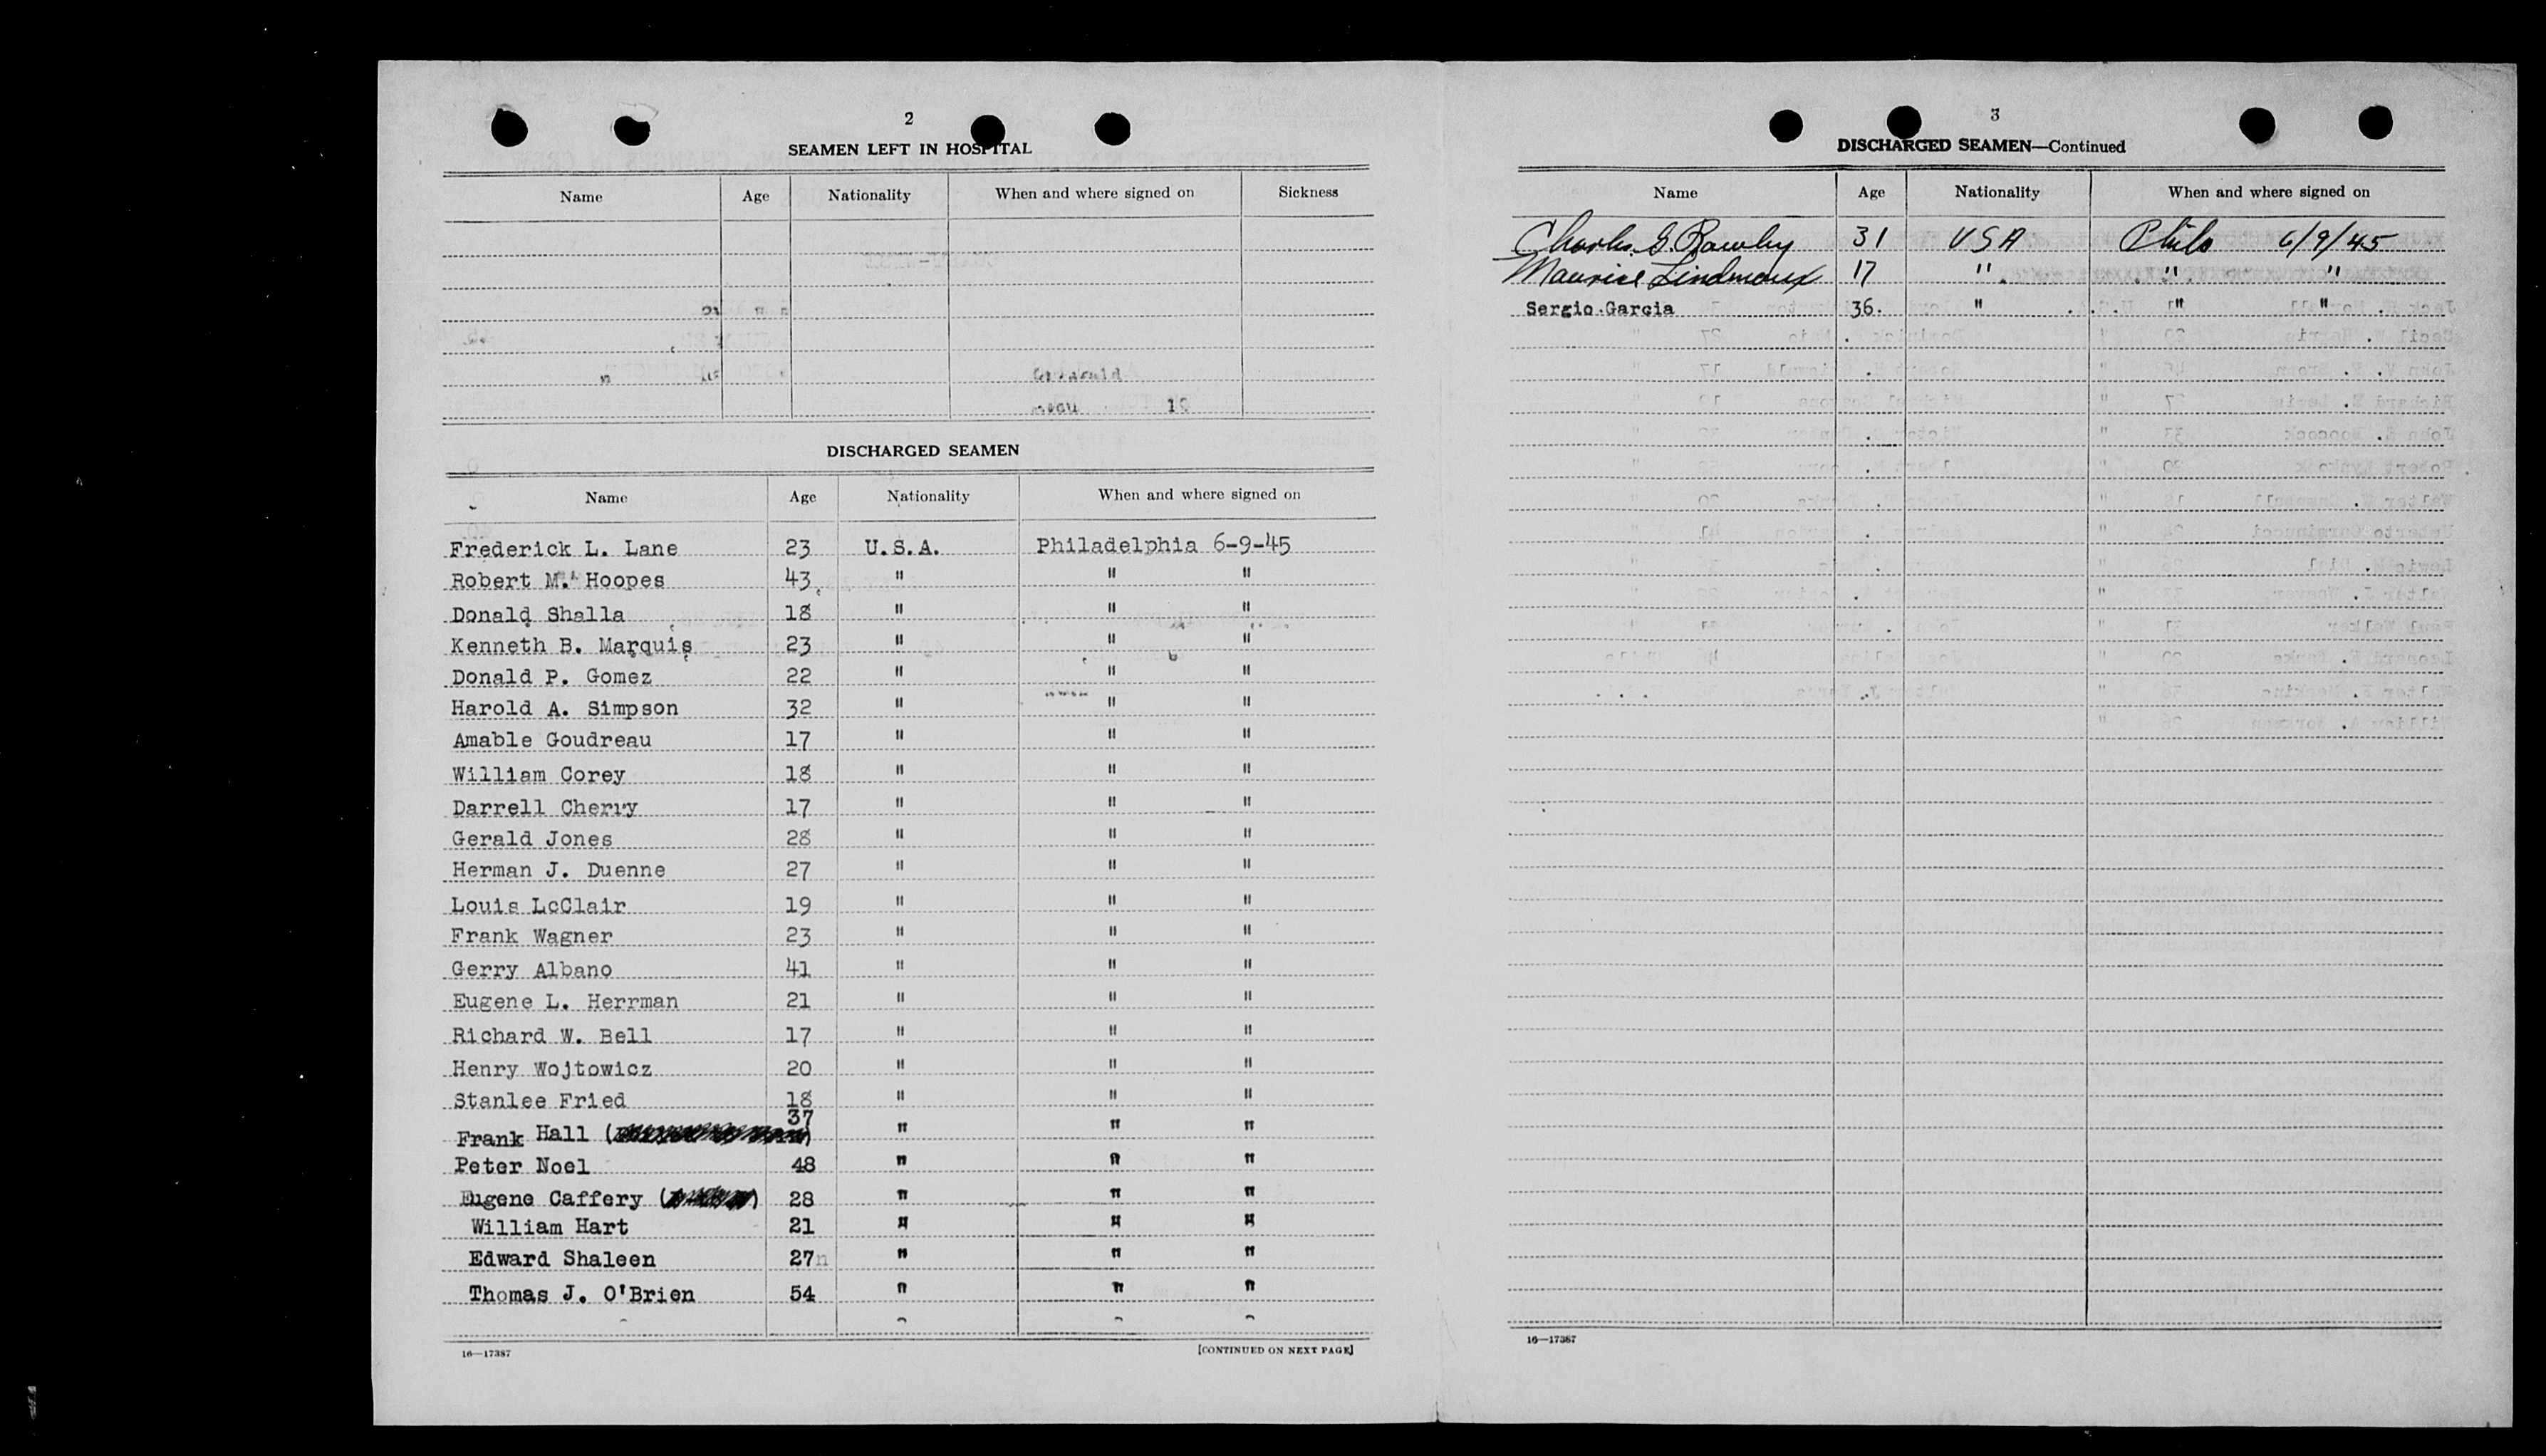 2
SEAMEN LEFT IN HOSPITAL
Name Age Nationality When and where signed on Sickness
DISCHARGED SEAMEN
Name Age Nationality When and where signed on
Frederick L. Lane 23 U.S.A. Philadelphia 6-9-45
Robert M. Hoopes 43 " " "
Donald Shalla 18 " " "
Kenneth B. Marquis 23 " " "
Donald P. Gomez 22 " " "
Harold A. Simpson 32 " " "
Amable Goudreau 17 " " "
William Corey 18 " " "
Darrell Cherry 17 " " "
Gerald Jones 28 " " "
Herman J. Duenne 27 " " "
Louis LcClair 19 " " "
Frank Wagner 23 " " "
Gerry Albano 41 " " "
Eugene L. Herrman 21 " " "
Richard W. Bell 17 " " "
Henry Wojtowicz 20 " " "
Stanlee Fried 18 " " "
Frank Hall ( ) 37 " " "
Peter Noel 48 " " "
Eugene Caffery ( ) 28 " " "
William Hart 21 " " "
Edward Shaleen 27 " " "
Thomas J. O'Brien 54 " " "
16—17387 [CONTINUED ON NEXT PAGE]
3
DISCHARGED SEAMEN—Continued
Name Age Nationality When and where signed on
Charles G. 31 USA Phila 6/9/45
Maurice 17 " " "
Sergio Garcia 36. " " "
16—17387